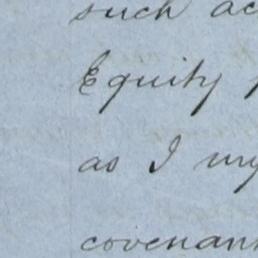 such ac
Equity
as I my
covenan